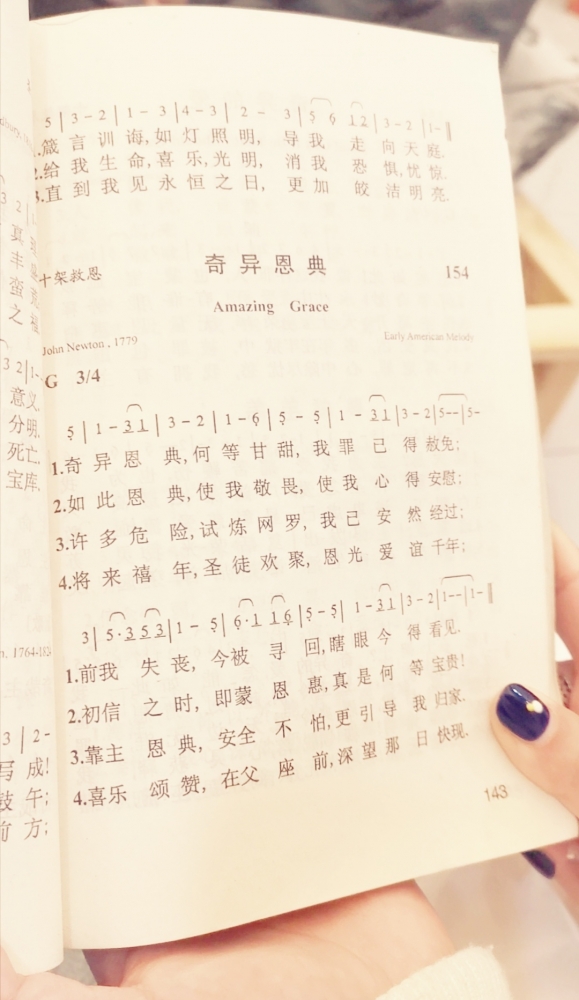 5 | 3 - 2 | 1 - 3 | 4 - 3 | 2 - 3 | 5 6 1 2 | 3 - 2 | 1 - ‖
1.箴言训诲,如灯照明, 导我走向天庭.
2.给我生命,喜乐,光明, 消我恐惧,忧惊.
3.直到我见永恒之日, 更加皎洁明亮.
十架救恩 奇异恩典 154
Amazing Grace
John Newton, 1779 Early American Melody
G 3/4
5̣ | 1 - 3 1 | 3 - 2 | 1 - 6̣ | 5̣ - 5̣ | 1 - 3 1 | 3 - 2 | 5 - - | 5 -
1.奇异恩典,何等甘甜,我罪已得赦免;
2.如此恩典,使我敬畏,使我心得安慰;
3.许多危险,试炼网罗,我已安然经过;
4.将来禧年,圣徒欢聚,恩光爱谊千年;
3 | 5 · 3 5 3 | 1 - 5̣ | 6̣ · 1 1 6̣ | 5̣ - 5̣ | 1 - 3 1 | 3 - 2 | 1 - - | 1 - ‖
1.前我失丧,今被寻回,瞎眼今得看见.
2.初信之时,即蒙恩惠,真是何等宝贵!
3.靠主恩典,安全不怕,更引导我归家.
4.喜乐颂赞,在父座前,深望那日快现.
143
3 2 | 1 -
丰
蛮
之
3 2 | 1 -
意义.
分明.
死亡.
宝库.
1764-182
3 | 2 -
写成!
鼓午;
前方;